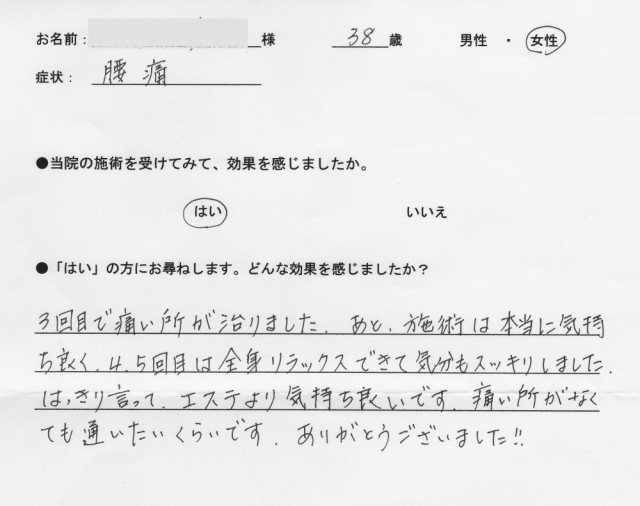 お名前： 様 38歳 男性 ・ 女性
症状： 腰痛
●当院の施術を受けてみて、効果を感じましたか。
はい いいえ
●「はい」の方にお尋ねします。どんな効果を感じましたか？
3回目で痛い所が治りました. あと、施術は本当に気持
ち良く、4.5回目は全身リラックスできて気分もスッキリしました.
はっきり言って、エステより気持ち良いです. 痛い所がなく
ても通いたいくらいです. ありがとうございました!!